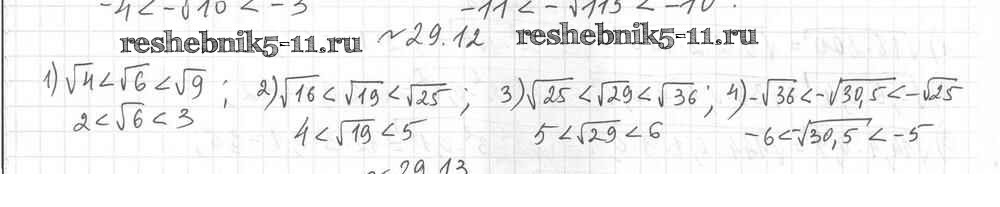 -4 < -√10 < -3 -11 < -√113 < -10.
reshebnik5-11.ru №29.12 reshebnik5-11.ru
1) √4 < √6 < √9 ; 2) √16 < √19 < √25 ; 3) √25 < √29 < √36 ; 4) -√36 < -√30,5 < -√25
2 < √6 < 3 4 < √19 < 5 5 < √29 < 6 -6 < -√30,5 < -5
№29.13